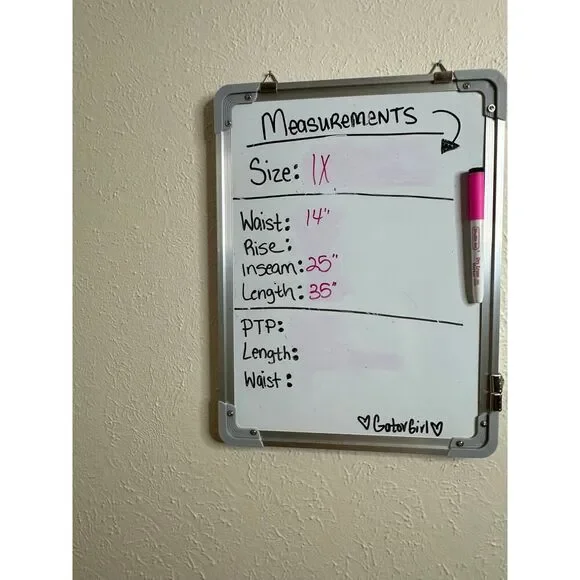 Measurements
Size: 1X
Waist: 14"
Rise:
Inseam: 25"
Length: 35"
PTP:
Length:
Waist:
♡GatorGirl♡